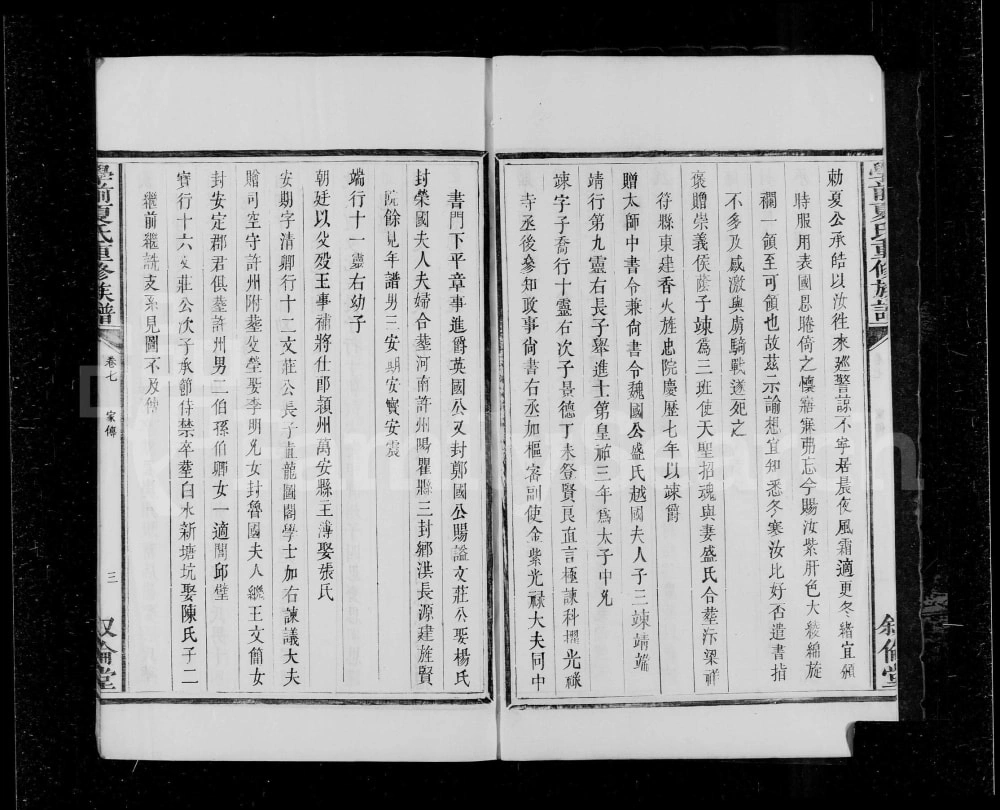 勅夏公承皓以汝徃來廵警諒不寧居晨夜風霜適更冬緒宜頒
時服用表國恩睠倚之懷寤寐弗忘今賜汝紫肝色大綾綿旋
襴一領至可領也故茲示諭想宜知悉冬寒汝比好否遣書指
不多及感激與虜騎戰遂死之
褒贈崇義侯蔭子竦爲三班使天聖招魂與妻盛氏合塟汴梁祥
符縣東建香火旌忠院慶歷七年以竦爵
贈太師中書令兼尙書令魏國公盛氏越國夫人子三竦靖端
靖行第九靈右長子舉進士第皇祐三年爲太子中允
竦字子喬行十靈右次子景德丁未登賢良直言極諫科擢光祿
寺丞後參知政事尙書右丞加樞密副使金紫光祿大夫同中
書門下平章事進爵英國公又封鄭國公賜謚文莊公娶楊氏
封榮國夫人夫婦合塟河南許州陽瞿縣三封鄉洪長源建旌賢
院餘見年譜男三安期安實安震
端行十一靈右幼子
朝廷以父殁王事補將仕郎潁州萬安縣主簿娶張氏
安期字清卿行十二文莊公長子直龍圖閣學士加右諫議大夫
贈司空守許州附塟父塋娶李明允女封魯國夫人繼王文簡女
封安定郡君俱塟許州男二伯孫伯卿女一適關邱壁
實行十六文莊公次子承節侍禁卒塟白水新塘坑娶陳氏子二
繼前繼詵支系見圖不及傳
學前夏氏重修族譜
卷七 家傳
三
敘倫堂